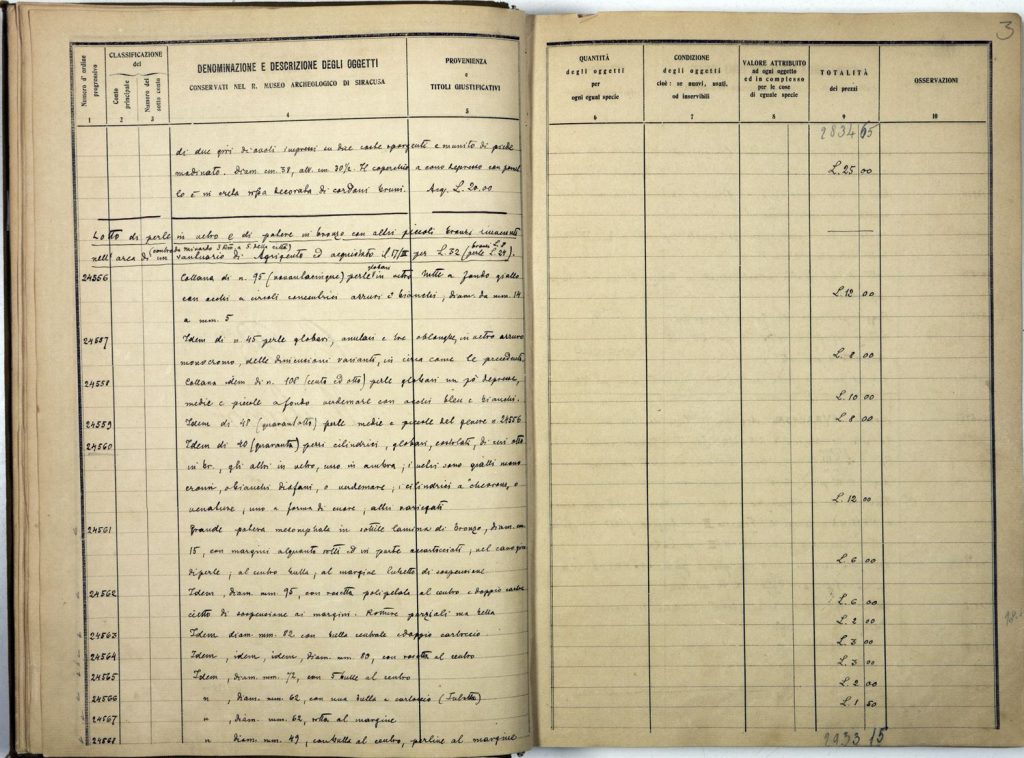 3
Numero d'ordine progressivo
CLASSIFICAZIONE
del
Conto principale
Numero del sotto conto
DENOMINAZIONE E DESCRIZIONE DEGLI OGGETTI
CONSERVATI NEL R. MUSEO ARCHEOLOGICO DI SIRACUSA
PROVENIENZA
e
TITOLI GIUSTIFICATIVI
QUANTITÀ
degli oggetti
per
ogni egual specie
CONDIZIONE
degli oggetti
cioè: se nuovi, usati,
od inservibili
VALORE ATTRIBUITO
ad ogni oggetto
ed in complesso
per le cose
di eguale specie
TOTALITÀ
dei prezzi
OSSERVAZIONI
1 2 3 4 5 6 7 8 9 10
2834 65
di due giri di ovoli impressi su due coste sporgenti e munito di piede
modinato. Diam. cm. 38, alt. cm. 30½. Il coperchio a cono depresso con
lo è in creta rossa decorata di cordoni bruni. Acq. L. 20.00
L. 25 00
Lotto di perle in vetro e di patere in bronzo con altri piccoli bronzi
(contrada 3 Km. a S. della città) bronzi L. 8
nell'area di un santuario di Agrigento ed acquistato il 17/III per L. 32 (perle L. 24).
24556 Collana di n. 95 (novantacinque) perle globari in vetro tutte a fondo giallo
con occhi a circoli concentrici azzurri e bianchi; diam. da mm. 14
a mm. 5
L. 12 00
24557 Idem di n. 45 perle globari, anulari e tre oblunghe, in vetro azzurro
monocromo, delle dimensioni varianti, in circa come le precedenti
L. 8 00
24558 Collana idem di n. 108 (cento ed otto) perle globari un pò depresse,
medie e piccole a fondo verdemare con occhi bleu e bianchi.
L. 10 00
24559 Idem di 48 (quarantotto) perle medie e piccole del genere n 24556
L. 8 00
24560 Idem di 40 (quaranta) pezzi cilindrici, globari, costolati, di cui otto
in br., gli altri in vetro, uno in ambra; i vetri sono gialli mono
cromi, o bianchi diafani, o verdemare; i cilindrici a "chevrons, o
venature, uno a forma di cuore, altri variegati
L. 12 00
24561 Grande patera mesomphala in sottile lamina di bronzo, diam. cm.
15, con margini alquanto rotti ed in parte accartocciati; nel cavo
di perle; al centro bulla, al margine di sospensione
L. 6 00
24562 Idem, diam. mm. 95, con rosetta polipetala al centro e doppio carto
ccetto di sospensione ai margini. Rotture parziali ma bella
L. 6 00
24563 Idem diam. mm. 82 con bulla centrale e doppio cartoccio
L. 2 00
24564 Idem, idem, idem, diam. mm 83, con rosetta al centro
L. 3 00
24565 Idem, diam. mm. 72, con 5 bulle al centro
L. 3 00
24566 " , diam. mm. 62, con una bulla e cartoccio
L. 2 00
24567 " , diam. mm. 62, rotta al margine
L. 1 50
24568 " diam. mm. 49, con bulla al centro, perline al margine
2933 15